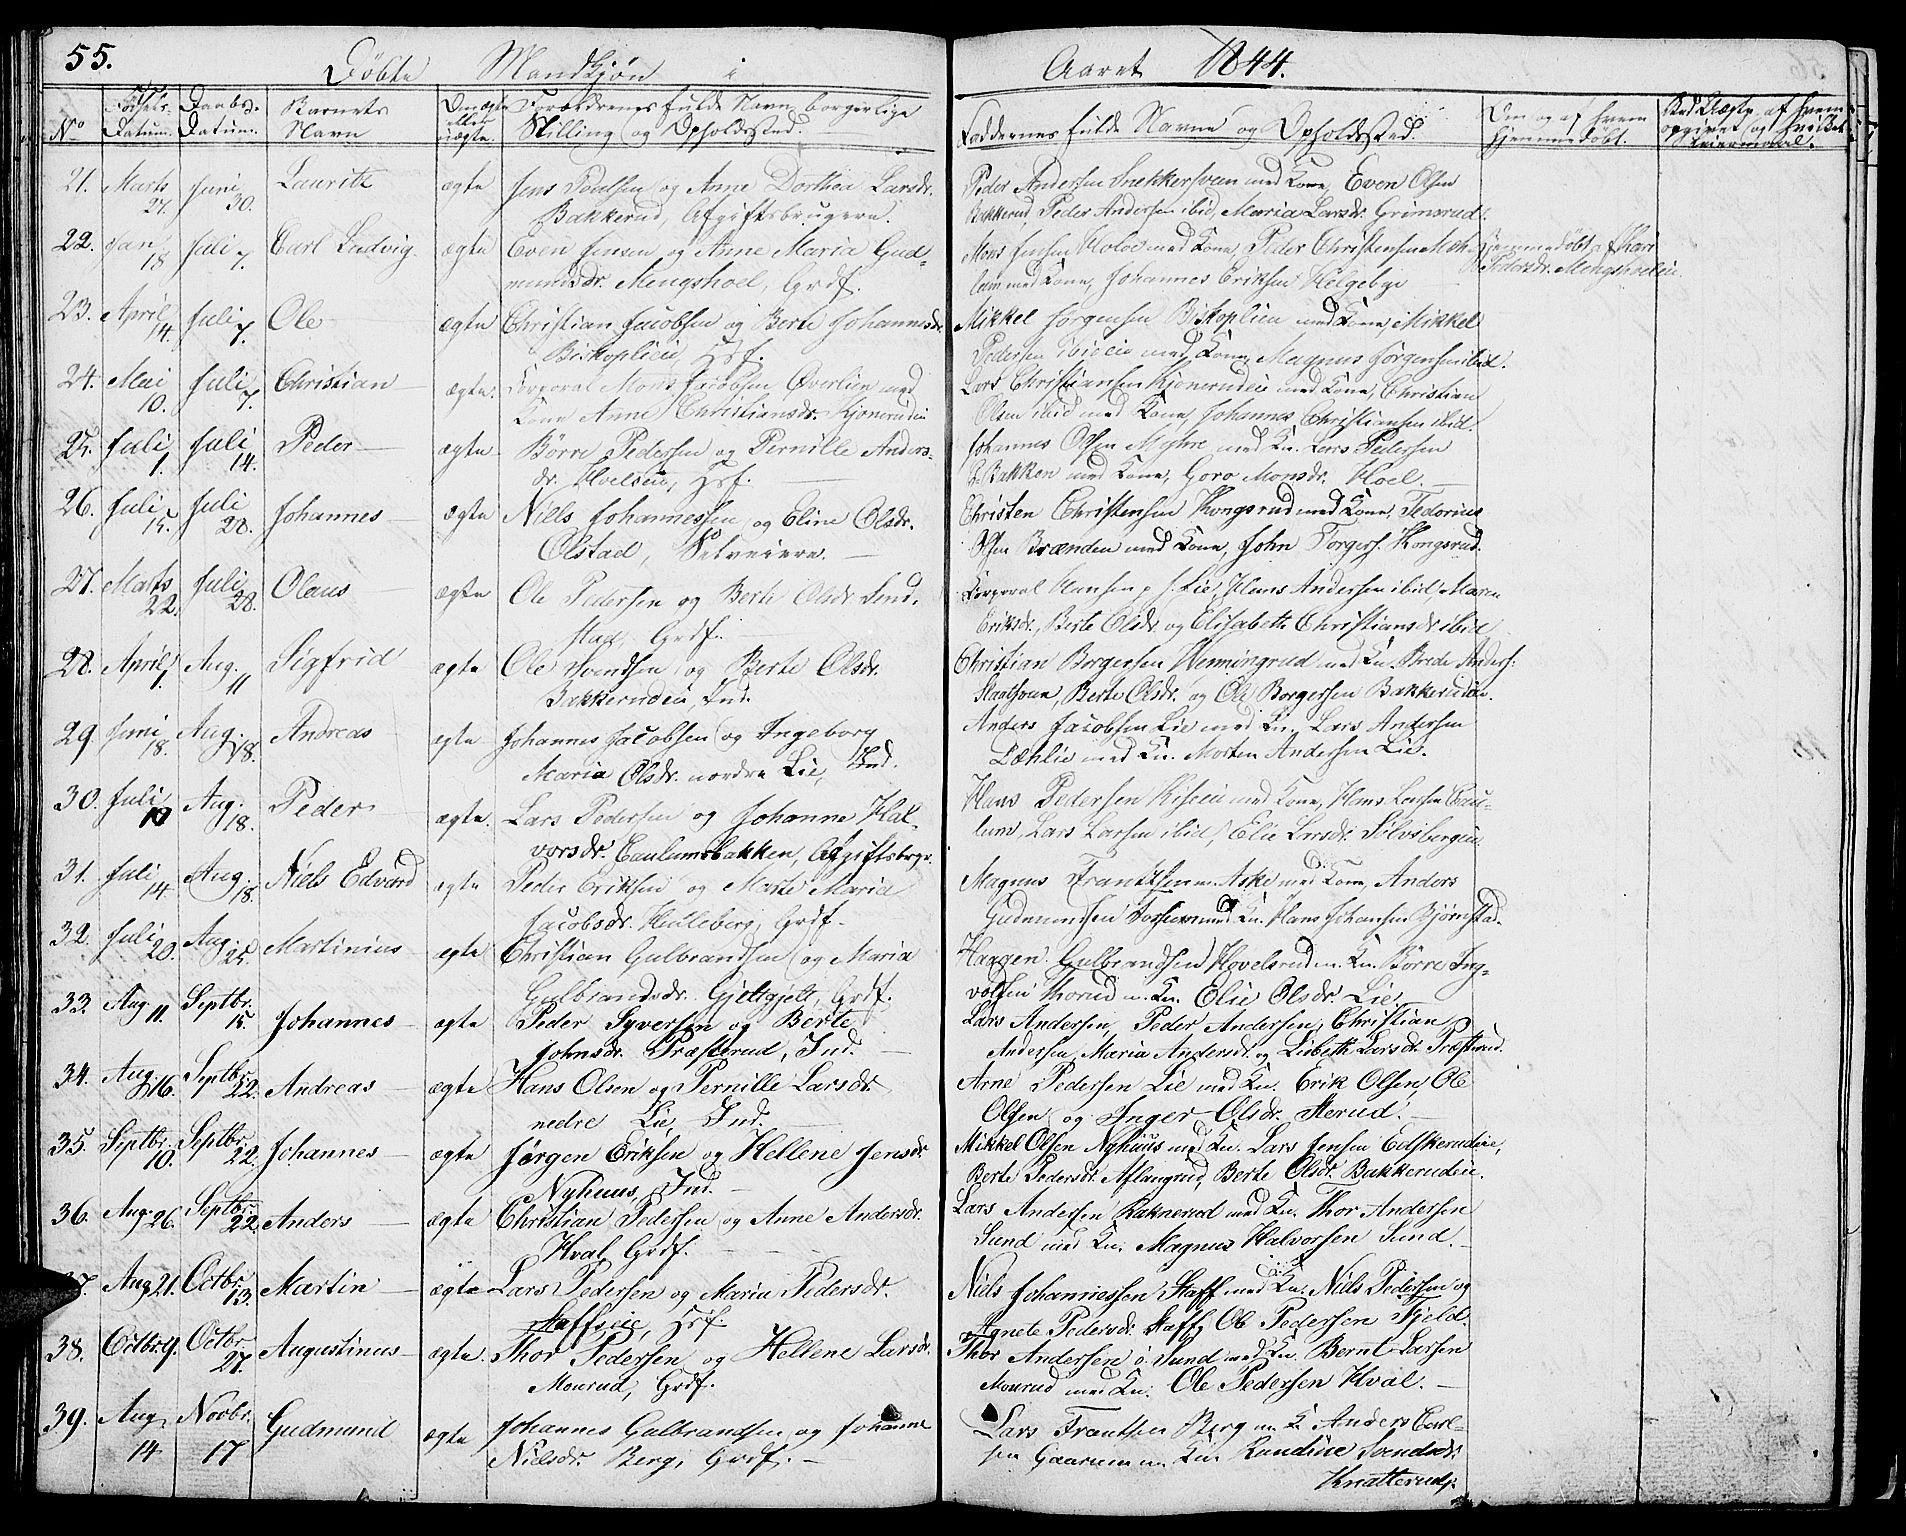 55. Döbte Mandkjön i Aaret 1844.
No Födsels Datum. Daabs Datum. Barnets Navn Om ægte eller uægte. Forældrenes fulde Navn, borgerlige Stilling og Opholdssted. Faddernes fulde Navne og Opholdssted. Om og af hvem Hjemmedöbt.
21. Marts 27. Juni 30. Lauritz ægte Jens Poulsen og Anne Dorthea Larsdr. Peder Andersen Snekkersveen med Kone, Even Olsen
Bakkerud, Afgiftsbrugere. Bakkerud, Peder Andersen ibid, Maria Larsdr. Grimsrud.
22. Jan 18 Juli 7. Carl Ludvig ægte Even Jensen og Anne Maria Gud- Mons Jensen Holoe med Kone, Peder Christensen Hjemmedöbt af Kari
mundsdr. Mengshoel, Grdf. med Kone, Johannes Eriksen Helgebye Pedersdr. Mengshoeleie
23. April 14. Juli 7. Ole ægte Christian Jacobsen og Berte Johannesdr. Mikkel Jörgensen Biskoplien med Kone, Mikkel
Biskoplieeie, Hsf. Pedersen ibideie med Kone, Magnus Jörgensen ibid.
24. Mai 10. Juli 7. Christian ægte. Corporal Mons Jacobsen Överlien med Lars Christiansen Kjonerudeie med Kone, Christian
Kone Anne Christiansdr. Kjonerudeie Olsen ibid med Kone, Johannes Christiansen ibid.
25. Juli 1. Juli 14. Peder ægte Börre Pedersen og Pernille Anders- Johannes Olsen Myhre med Kn. Lars Pedersen
dr. Hoelseie, Hsf. Bakken med Kone, Goro Monsdr. Hoel.
26. Juli 15. Juli 28. Johannes ægte Niels Johannessen og Eline Olsdr. Christen Christensen Kongsrud med Kone, Fedorius
Olstad, Selveiere. Olsen Brænden med Kone, John Torgers. Kongsrud.
27. Marts 22. Juli 28. Olaus ægte Ole Pedersen og Berte Olsdr. Corporal Hansen Lie, Hans Andersen ibid, Maren
Grdf. Eriksdr., Berte Olsdr. og Elisabeth Christiansdr ibid
28. April 1. Aug. 11 Sigfrid ægte Ole Svendsen og Berte Olsdr. Christian Borgersen Hemmingrud med Kn. Brede Anders:
Bakkerudeie, Ind. Berte Olsdr. og Ole Borgersen Bakkerudeie.
29 Juni 18. Aug. 18. Andreas ægte Johannes Jacobsen og Ingeborg Anders Jacobsen Lie med Kn. Lars Andersen
Maria Olsdr. nordre Lie, Ind. Dæhlie med Kn. Morten Andersen Lie.
30. Juli 10 Aug. 18. Peder ægte. Lars Pedersen og Johanne Hal- Hans Pedersen Riseeie med Kone, Hans Larsen Cau-
vorsdr. Caulumsbakken, Afgiftsbrgr. lum, Lars Larsen ibid, Elie Larsdr. Sölvsbergeie
31. Juli 14. Aug. 18. Niels Edvard ægte Peder Eriksen og Marte Maria Magnus Frantzsen n. Aske med Kone, Anders
Jacobsdr. Hulleberg, Grdf. Gudmundsen med Kn. Hans Johansen Björnstad.
32. Juli 20. Aug. 25. Martinius ægte Christian Gulbrandsen og Maria Haagen Gulbrandsen Hovelsrud m. Kn. Börre Ing-
Gulbrandsdr. Grdf. volsen Thorud m. Kn. Elie Olsdr. Lie.
33. Aug 11. Septbr. 15. Johannes ægte Peder Syversen og Berte Lars Andersen, Peder Andersen, Christian
Johnsdr. Præsterud, Ind. Andersen, Maria Andersdr. og Lisbeth Larsdr. Præsterud.
34. Aug. 16. Septbr. 22. Andreas ægte Hans Olsen og Pernille Larsdr. Arne Pedersen Lie med Kn. Erik Olsen, Ole
nedre Lie, Ind. Olsen og Inger Olsdr. Sterud.
35. Septbr. 10. Septbr. 22. Johannes ægte Jörgen Eriksen og Hellene Jensdr. Mikkel Olsen Nyhuus med Kn. Lars Jensen Edskerudeie,
Nyhuus, Ind. Berte Pedersdr. Aflangrud, Berte Olsdr. Bakkerudeie.
36. Aug. 26. Septbr. 22. Anders ægte Christian Pedersen og Anne Andersdr. Lars Andersen Raknerud med Kn. Thor Andersen
Hval, Grdf. Sund med Kn. Magnus Halvorsen Sund.
37. Aug 21. Octbr. 13. Martin ægte Lars Pedersen og Maria Pedersdr. Niels Johannessen Staff med Kn. Niels Pedersen og
Staffseie, Hsf. Agnete Pedersdr. Staff, Ole Pedersen Fjeld.
38. Octbr. 9. Octbr. 27. Augustinus ægte. Thor Pedersen og Hellene Larsdr. Thor Andersen ö. Sund med Kn. Bernt Larsen
Monrud, Grdf. Monrud med Kn. Ole Pedersen Hval.
39. Aug 14 Novbr. 17 Gudmund ægte Johannes Gulbrandsen og Johanne Lars Frantsen Berg m. K. Anders Carl-
Nielsdr. Berg, Grdf. sen Gaarum m. Kn. Randine Svendsdr.
Knatterud.